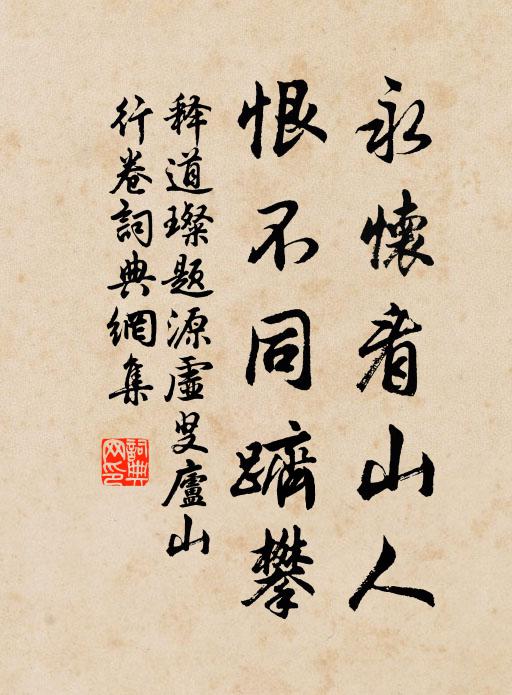 永懷看山人
恨不同躋攀
释道璨题源虛叟廬山
行卷詞典網集
詞典
网印